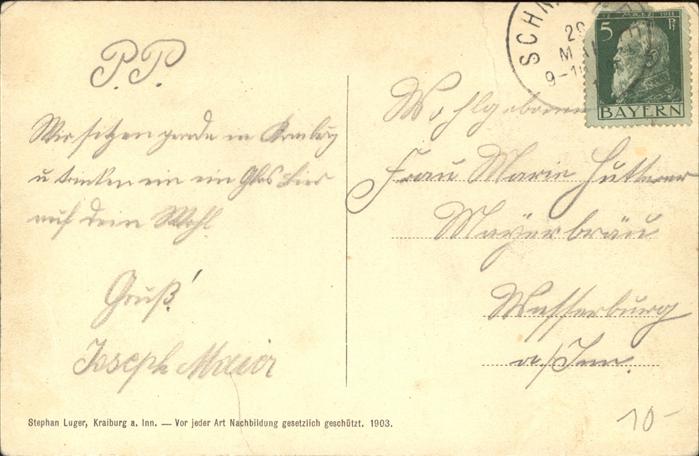 P.P.
Wir sitzen gerade in Kraiburg
u trinken ein ein Glas Bier
auf dein Wohl.
Gruß!
Joseph Maier
Stephan Luger, Kraiburg a. Inn. — Vor jeder Art Nachbildung gesetzlich geschützt. 1903.
SCHN
20
MAI
9-10
5 Pf
BAYERN
Wohlgeboren
Frau Marie Hutterer
Mayerbräu
Wasserburg
a/Inn.
10-